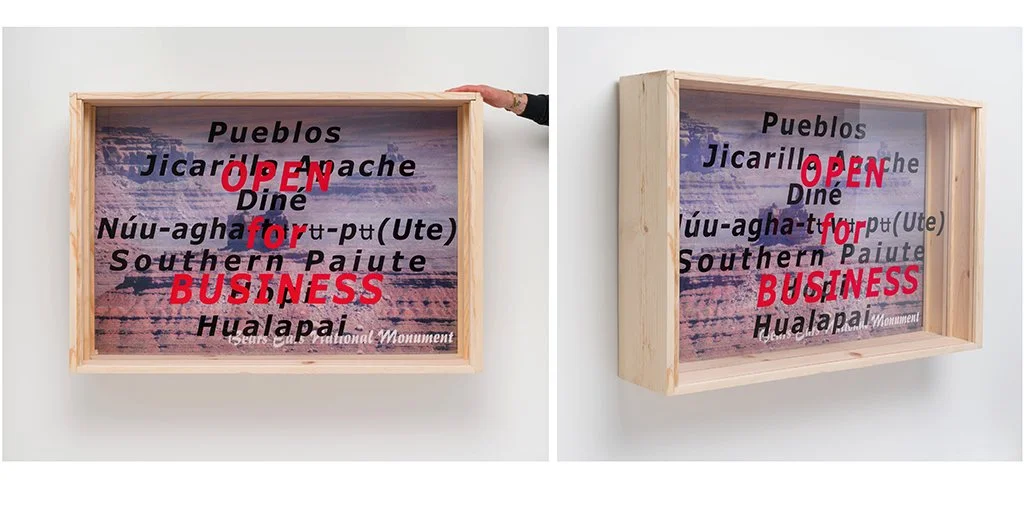 Pueblos
Jicarilla Apache
OPEN
Diné
Núu-agha-tʉvʉ-pʉ(Ute)
for
Southern Paiute
BUSINESS
Hopi
Hualapai
Bears Ears National Monument
Pueblos
Jicarilla Apache
OPEN
Diné
Núu-agha-tʉvʉ-pʉ(Ute)
for
Southern Paiute
BUSINESS
Hopi
Hualapai
Bears Ears National Monument